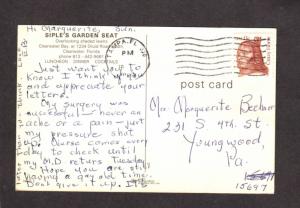 SIPLE'S GARDEN SEAT
Overlooking shaded lawns
Clearwater Bay at 1234 Druid Road
Clearwater, Florida
phone 813 - 442-9681
LUNCHEON DINNER COCKTAILS
Hi Marguerite, Sun.
Just want you to
know I think of you
and appreciate your
letters.
My surgery was
successful - never an
ache or a pain - just
my pressure shot
up. Nurse comes every
day to check until
my M.D returns Tuesday
Hope you are still
having a gay old time.
Dont give it up. It's
TAMPA, FL
post card
Mrs. Marguerite
231 S. 4th St.
Youngwood
Pa.
15697